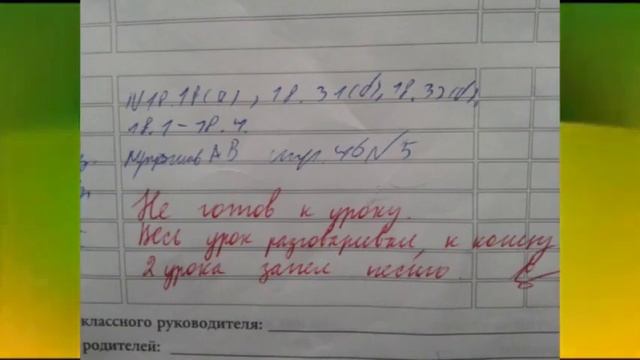 N18.18(а), 18.31(б), 18.32(б),
18.1-18.4.
А В стр. 46 N 5
Не готов к уроку.
Весь урок разговаривал, к концу
2 урока запел песню.
классного руководителя:
родителей: